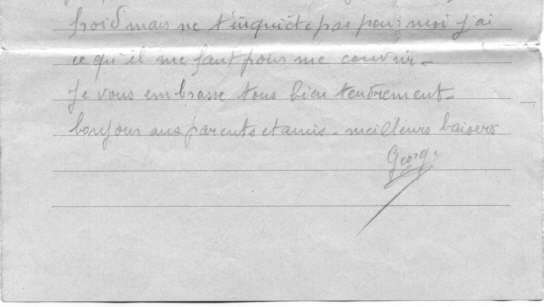 froid mais ne t'inquiète pas pour moi j'ai
ce qu'il me faut pour me couvrir -
Je vous embrasse tous bien tendrement -
bonjour aux parents et amis - meilleurs baisers
George